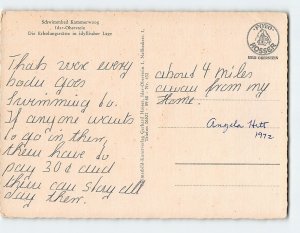 Schwimmbad Kammerwoog
Idar-Oberstein
Die Erholungsgärten in idyllischer Lage
Thats wex every
bodu goes
Swimming to.
If anyone wants
to go in then,
then have to
pay 30¢ and
then can stay all
day then.
FOTO
HOSSER
IDAR-OBERSTEIN
about 4 miles
awau from my
Home.
Angela Hott
1972